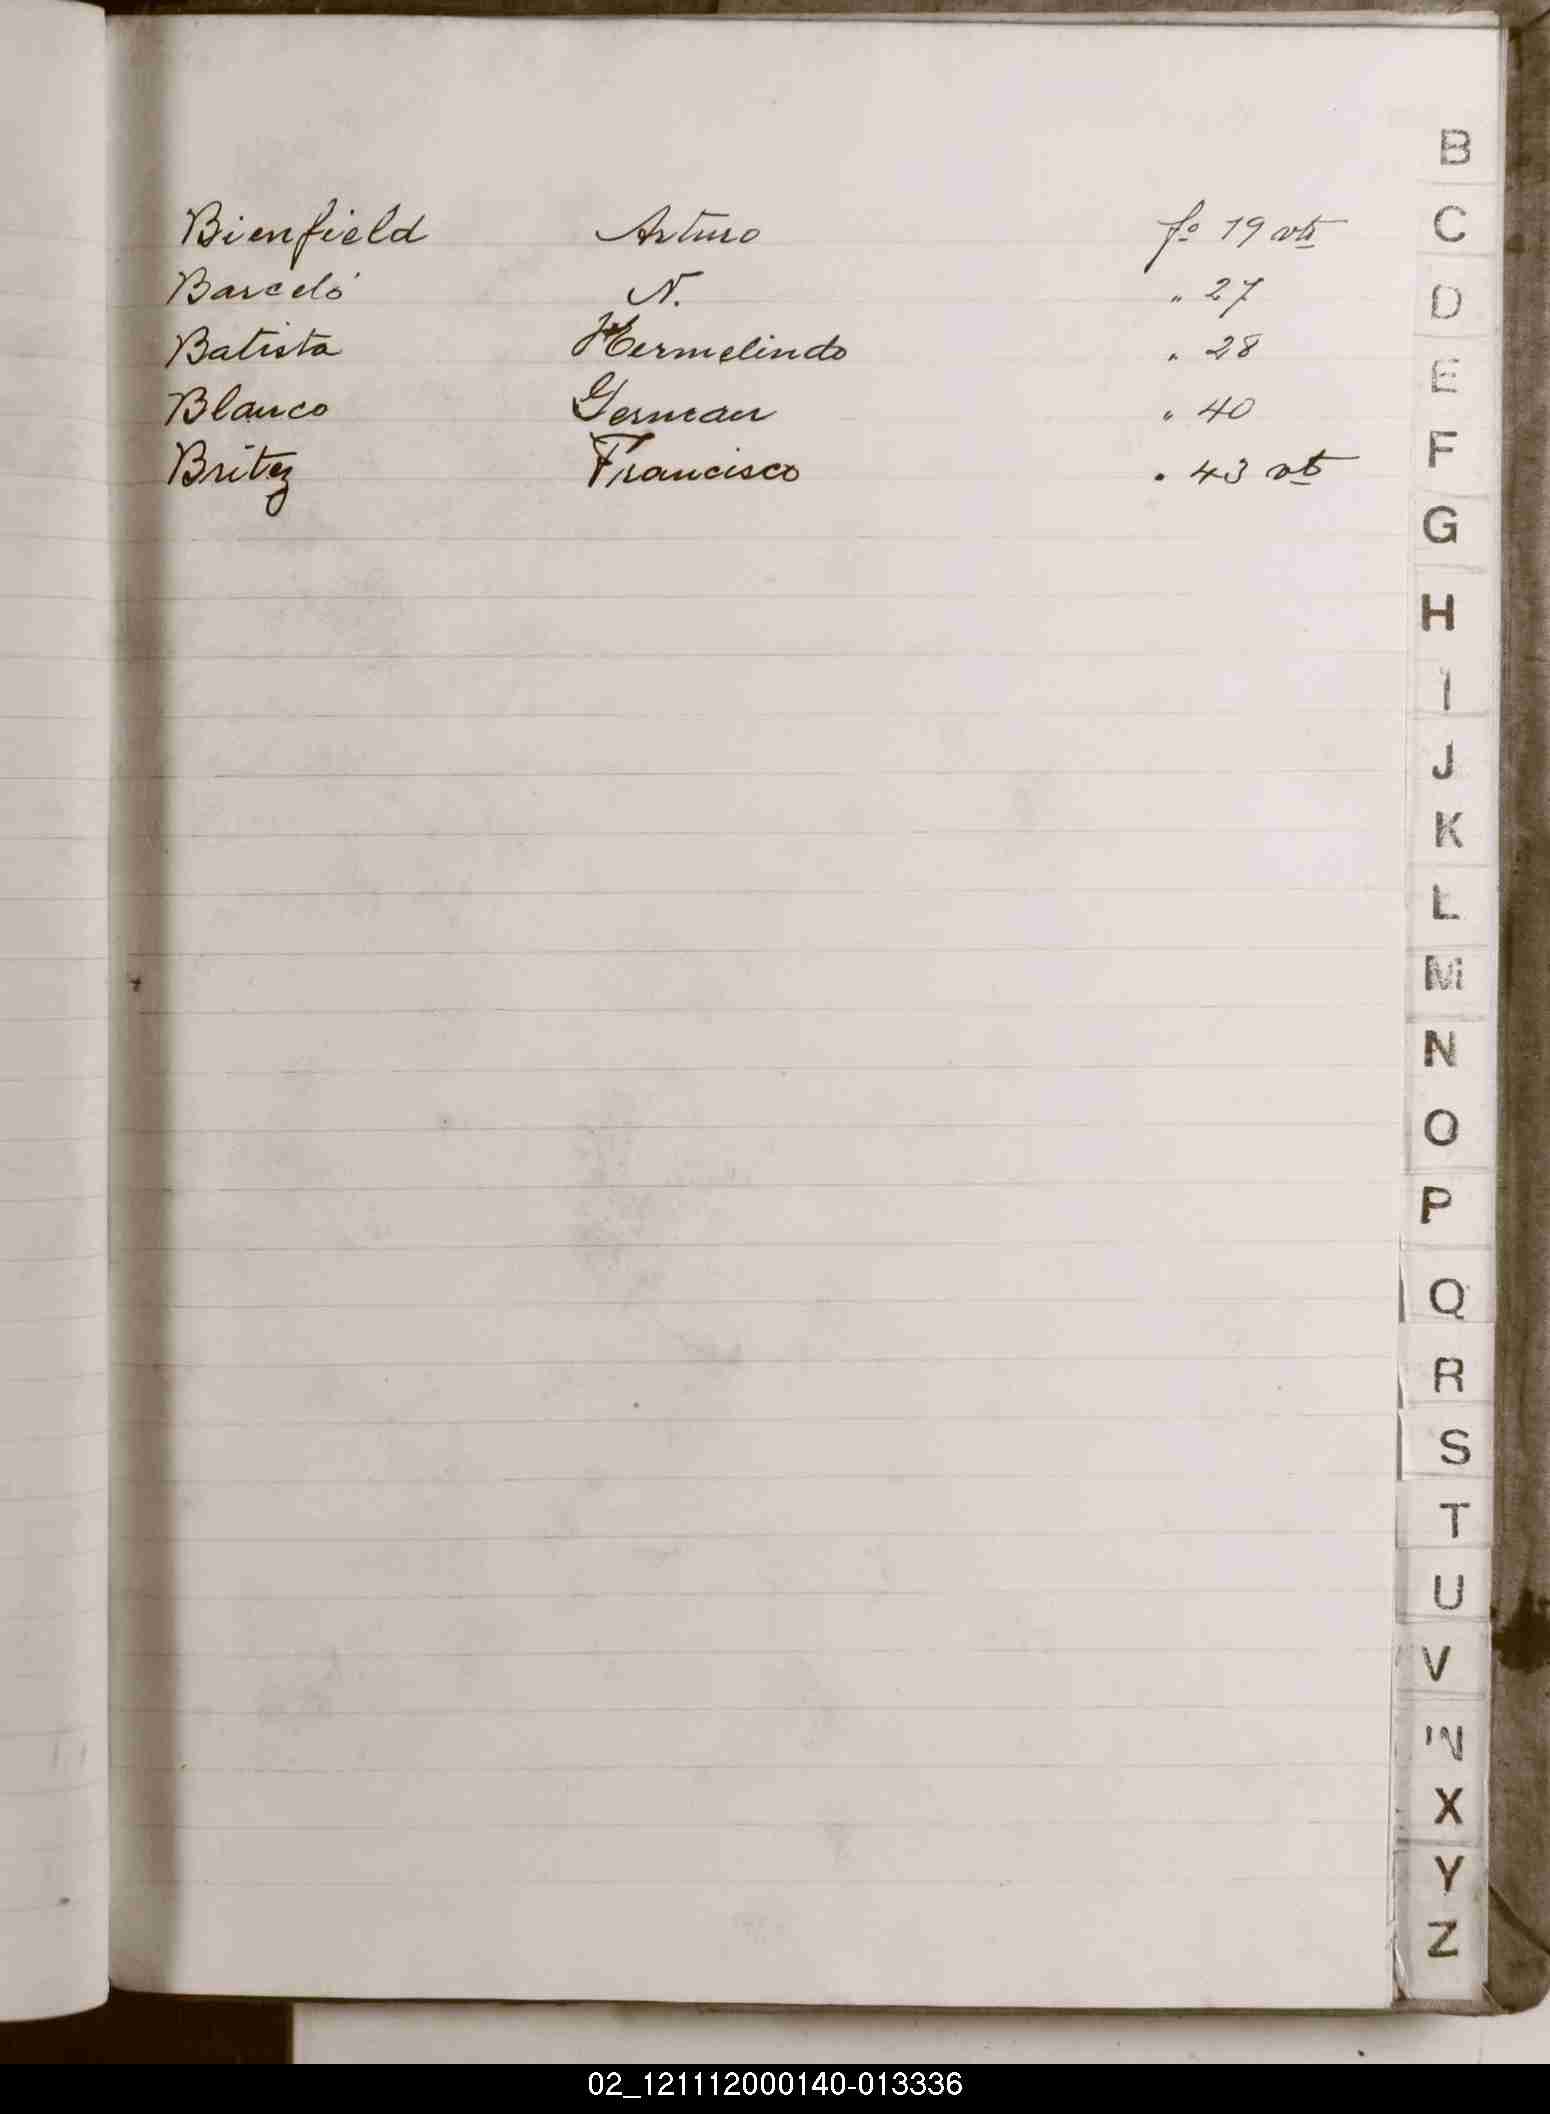 Bienfield Arturo fo 19 vta
Barceló N. " 27
Batista Hermelindo " 28
Blanco German " 40
Britez Francisco " 43 vta
B
C
D
E
F
G
H
I
J
K
L
M
N
O
P
Q
R
S
T
U
V
W
X
Y
Z
02_121112000140-013336